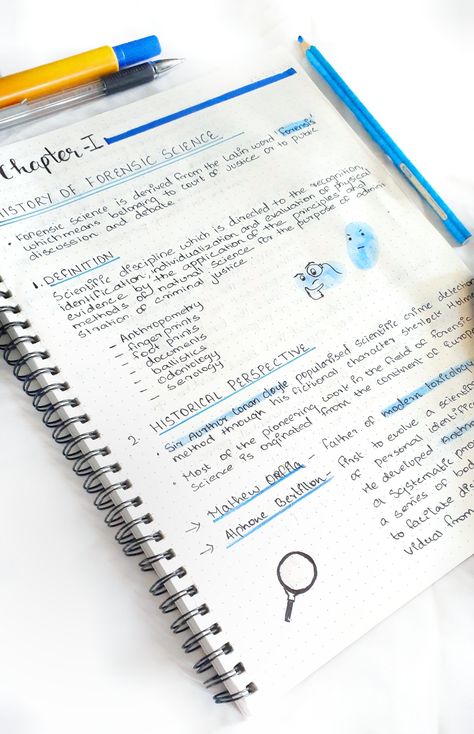 Chapter-I
HISTORY OF FORENSIC SCIENCE
• Forensic science is derived from the Latin word 'Forensis'
which means belonging to court of justice or to public
discussion and debate
1. DEFINITION
Scientific discipline which is directed to the recognition,
identification, individualization and evaluation of physical
evidence by the application of the principles and
methods of natural science for the purpose of admini
stration of criminal justice.
- Anthropometry
- finger prints
- foot prints
- documents
- ballistics
- odontology
- serology
2. HISTORICAL PERSPECTIVE
Sir Aurthur Conan doyle popularised scientific crime detection
method through his fictional character sherlock Holm
• Most of the pioneering work in the field of forensic
science is orginated from the continent of Europe
→ Mathew Orfila - father of modern toxicology
→ Alphone Bertillon - first to evolve a scientific
of personal identific
He developed
a systematic pro
a series of bod
to facilate dis
videos from